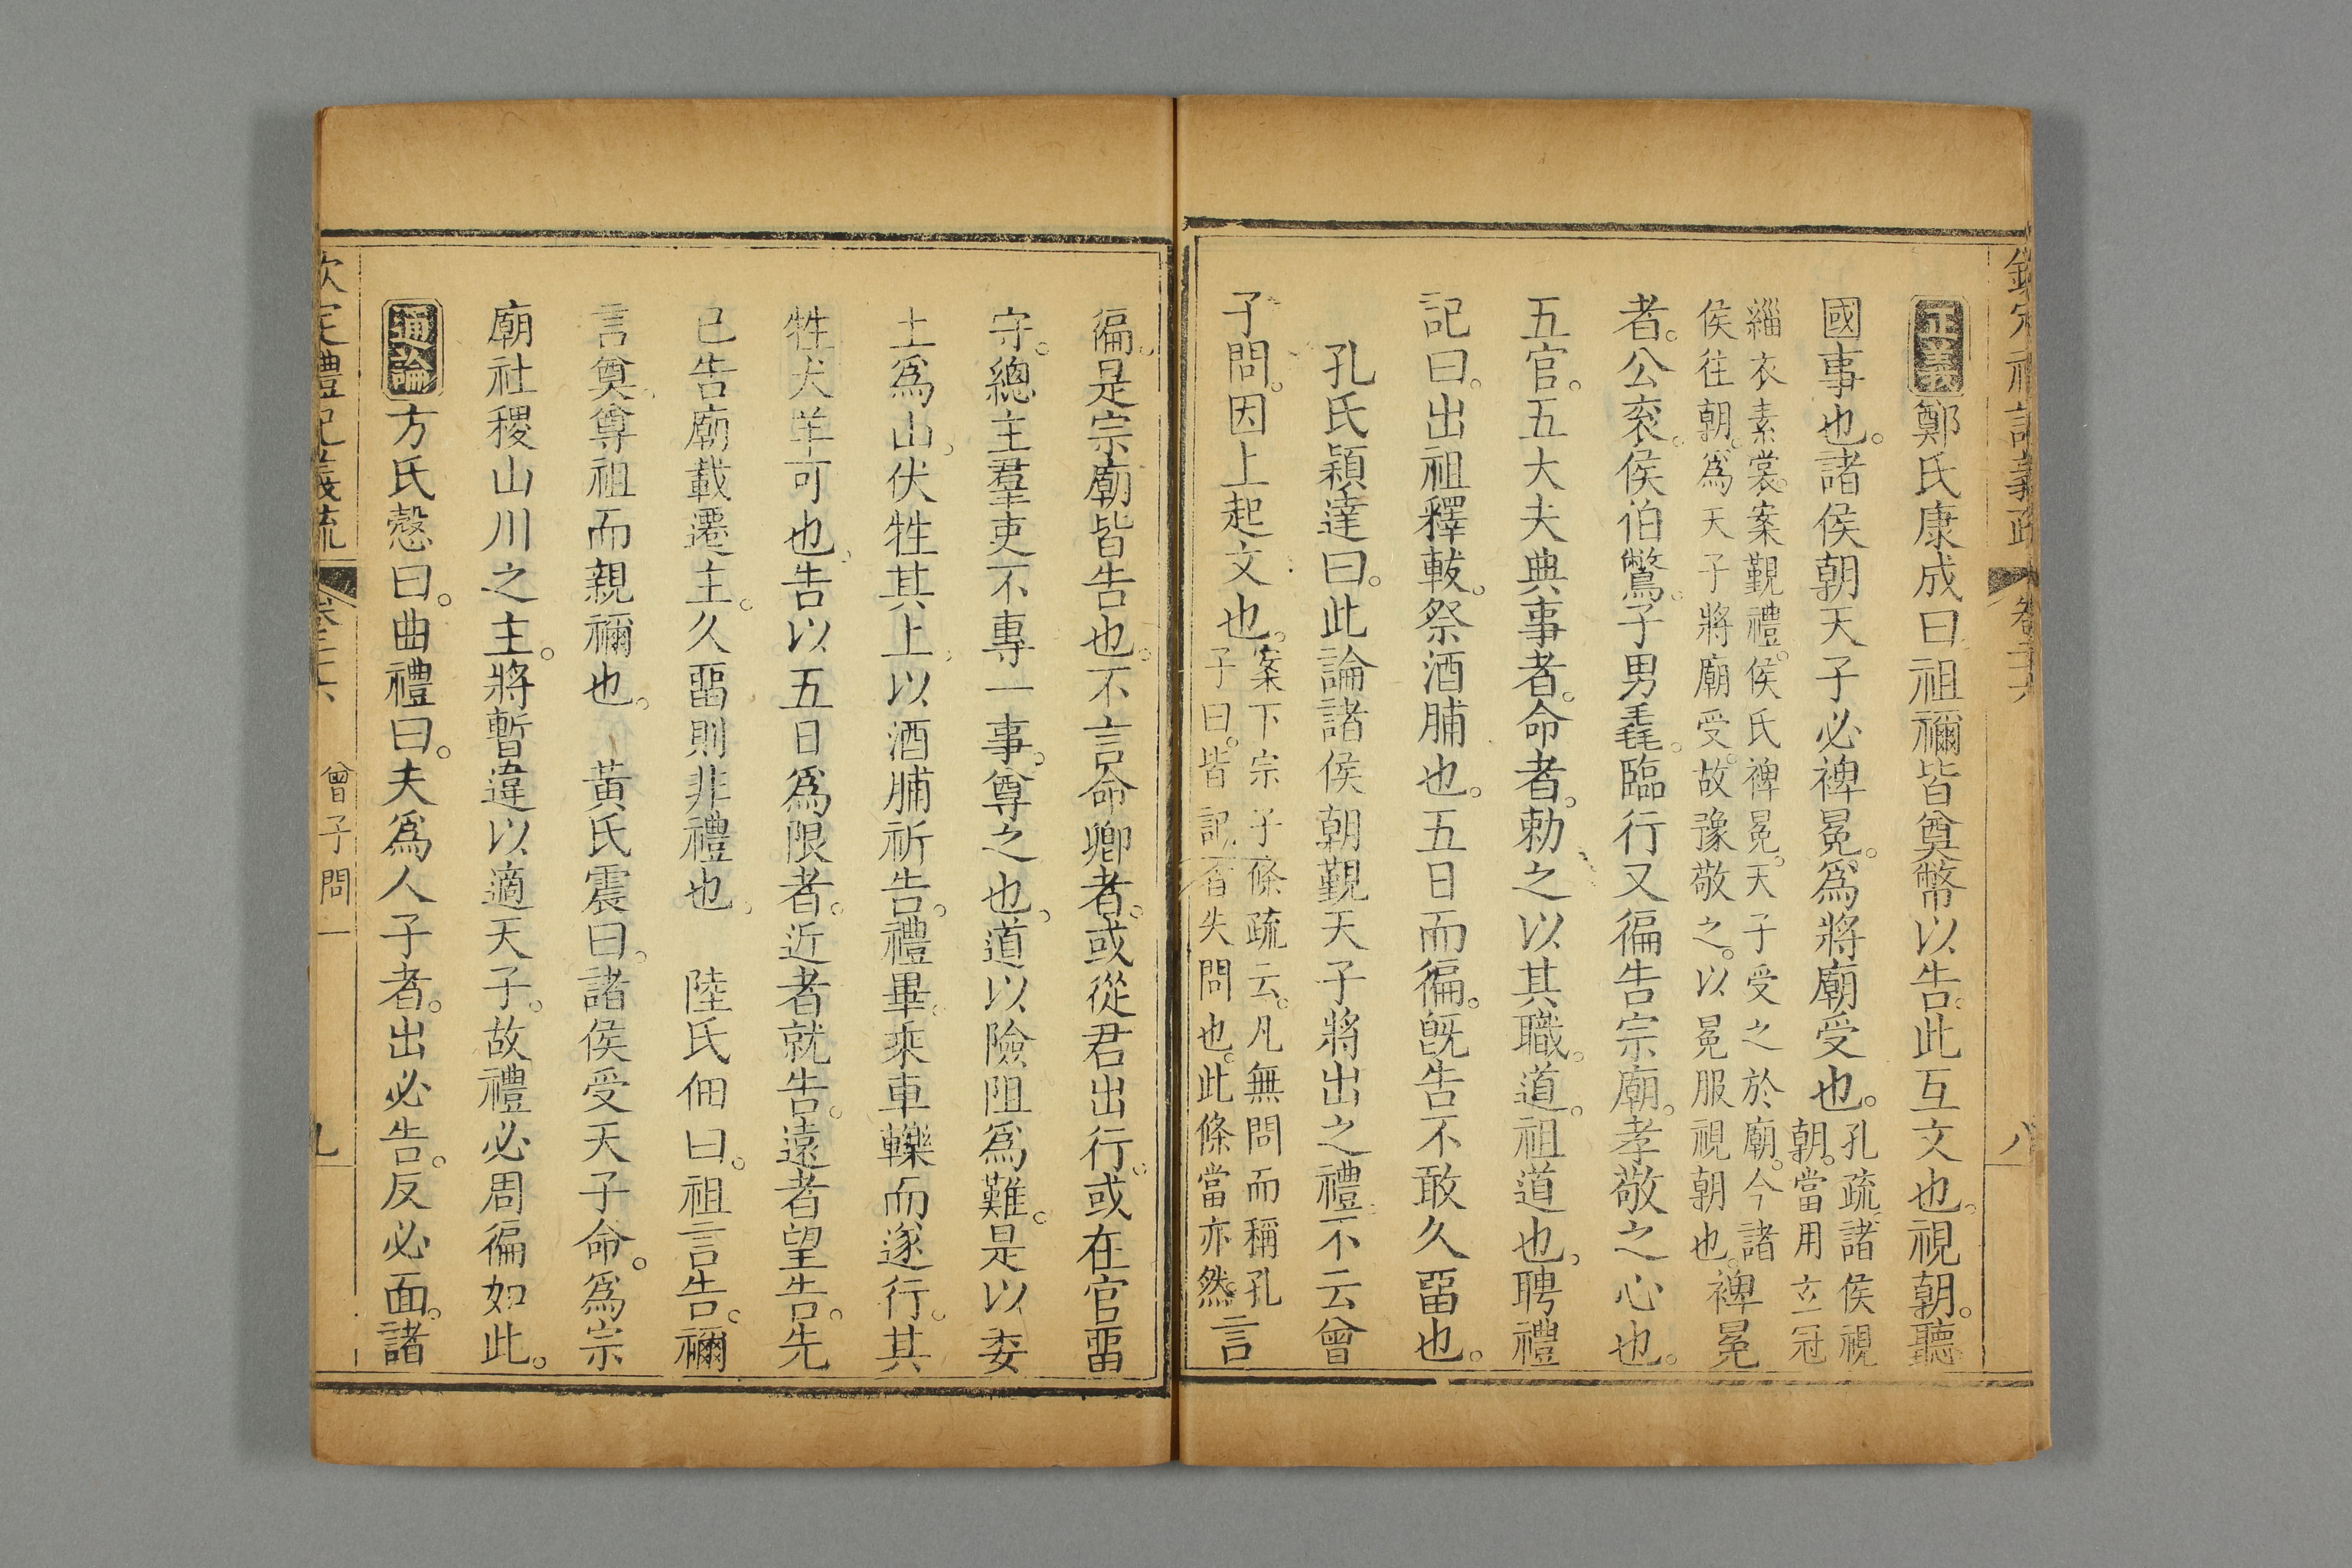 欽定禮記義疏 卷二十六 八
正義鄭氏康成曰祖禰皆奠幣以告。此互文也。視朝。聽
國事也。諸侯朝天子必裨冕。爲將廟受也。孔疏。諸侯視朝。當用玄冠
緇衣素裳。案覲禮。侯氏裨冕。天子受之於廟。今諸侯往朝。爲天子將廟受。故豫敬之。以冕服視朝也。裨冕
者。公袞。侯伯鷩。子男毳。臨行又徧告宗廟。孝敬之心也。
五官。五大夫典事者。命者。勅之以其職。道。祖道也。聘禮
記曰。出祖釋軷。祭酒脯也。五日而徧。旣告不敢久畱也。
孔氏穎達曰。此論諸侯朝覲天子將出之禮。不云曾
子問。因上起文也。案下宗子條疏云。凡無問而稱孔子曰。皆記者失問也。此條當亦然。言
徧。是宗廟皆告也。不言命卿者。或從君出行。或在官畱
守。總主羣吏不專一事。尊之也。道以險阻爲難。是以委
土爲山。伏牲其上。以酒脯祈告。禮畢。乘車轢而遂行。其
牲犬羊可也。告以五日爲限者。近者就告。遠者望告。先
已告廟載遷主。久畱則非禮也。 陸氏佃曰。祖言告。禰
言奠。尊祖而親禰也。 黃氏震曰。諸侯受天子命。爲宗
廟社稷山川之主。將暫違以適天子。故禮必周徧如此。
通論方氏慤曰。曲禮曰。夫爲人子者。出必告。反必面。諸
欽定禮記義疏 卷二十六 曾子問一 九